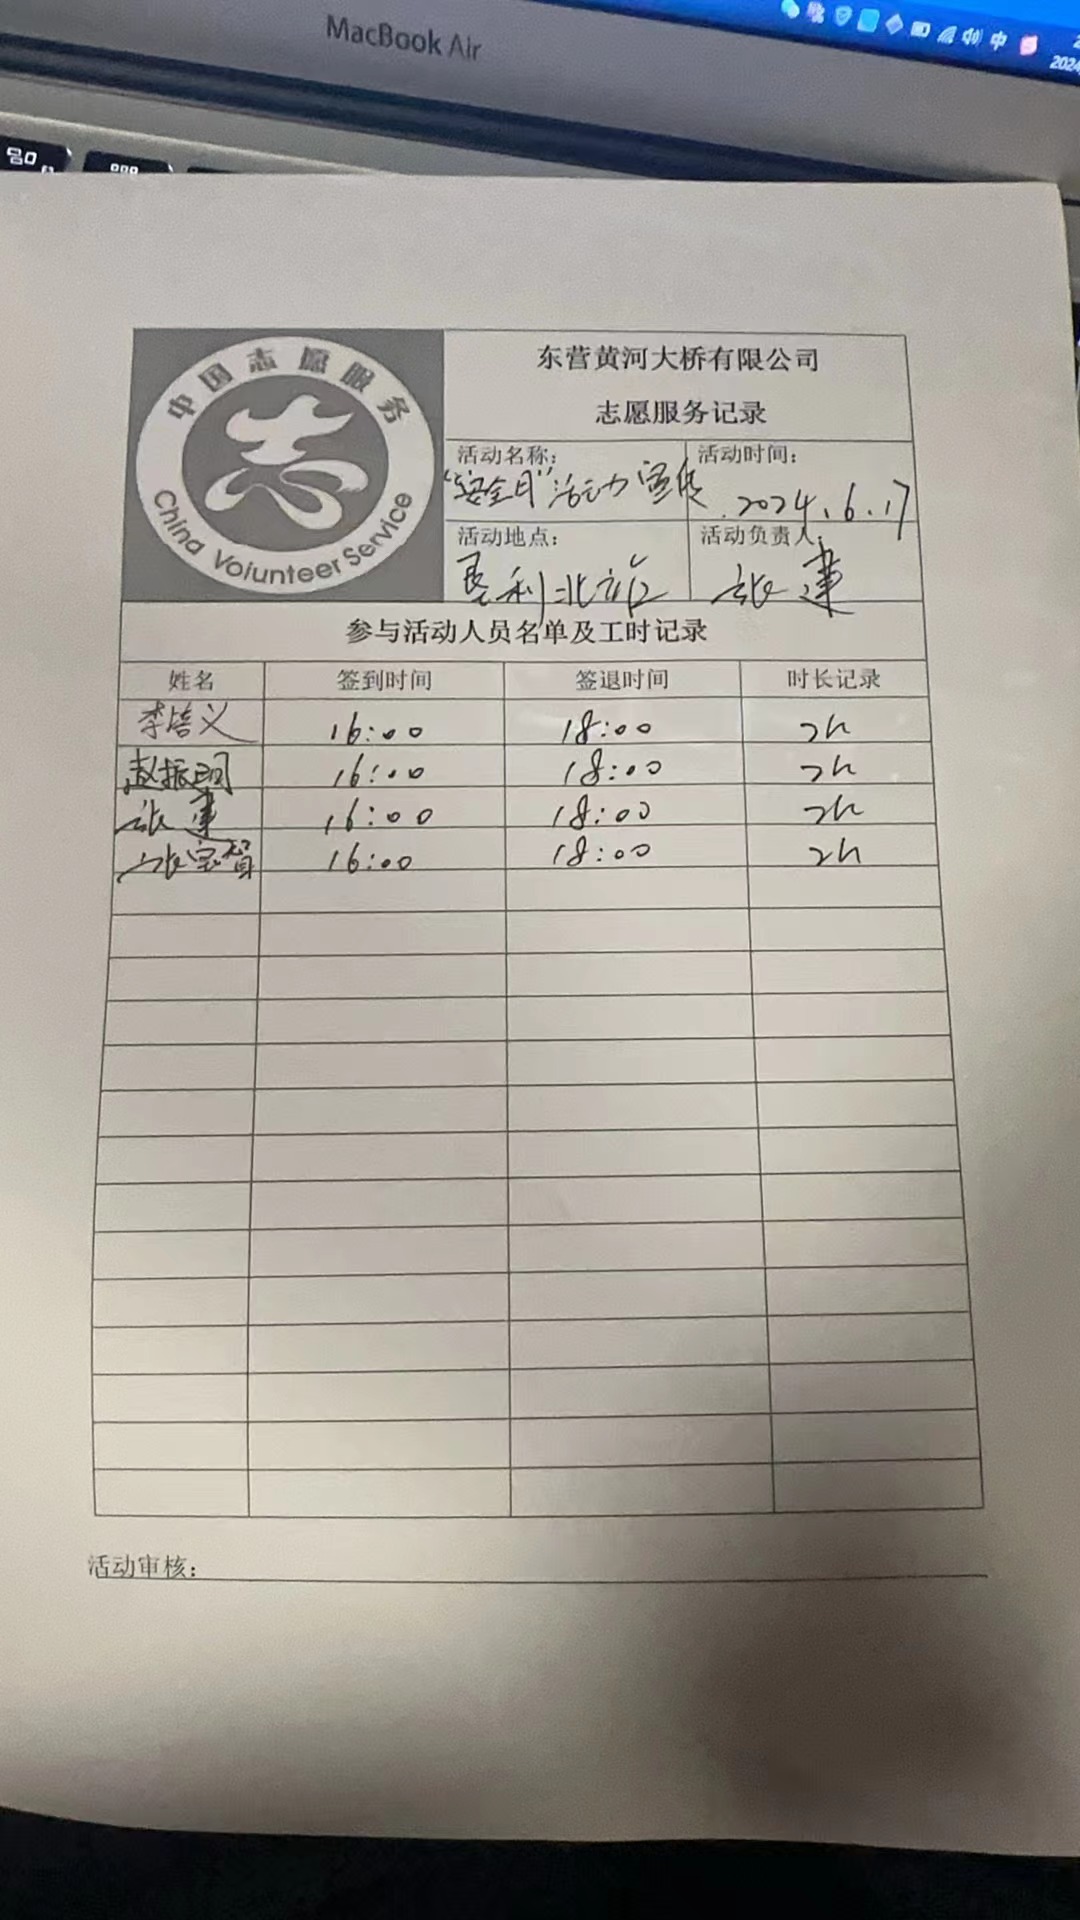 MacBook Air
中
2024
中国志愿服务
China Voiunteer Service
东营黄河大桥有限公司
志愿服务记录
活动名称：
活动时间：
"安全月"活动宣传
2024.6.17
活动地点：
活动负责人：
垦利北站
张建
参与活动人员名单及工时记录
姓名 签到时间 签退时间 时长记录
李培义 16:00 18:00 2h
赵振 16:00 18:00 2h
张建 16:00 18:00 2h
张宝智 16:00 18:00 2h
活动审核：